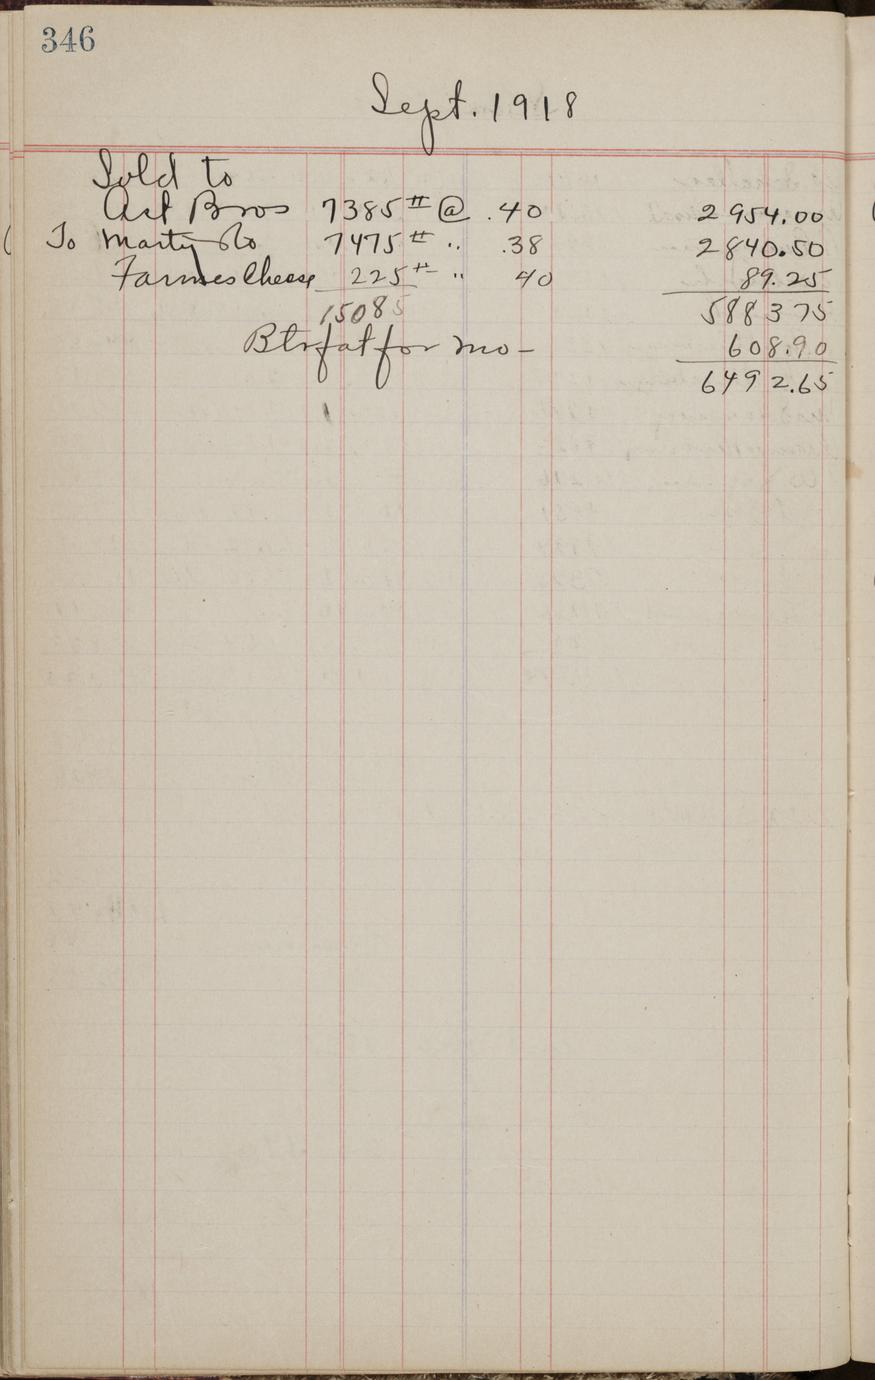 346
Sept. 1918
Sold to
Bros 7385# @ .40 2954.00
To Marty Co 7475# " .38 2840.50
Farmes Cheese 225# " 40 89.25
15085 588375
Btrfat for mo- 608.90
6492.65